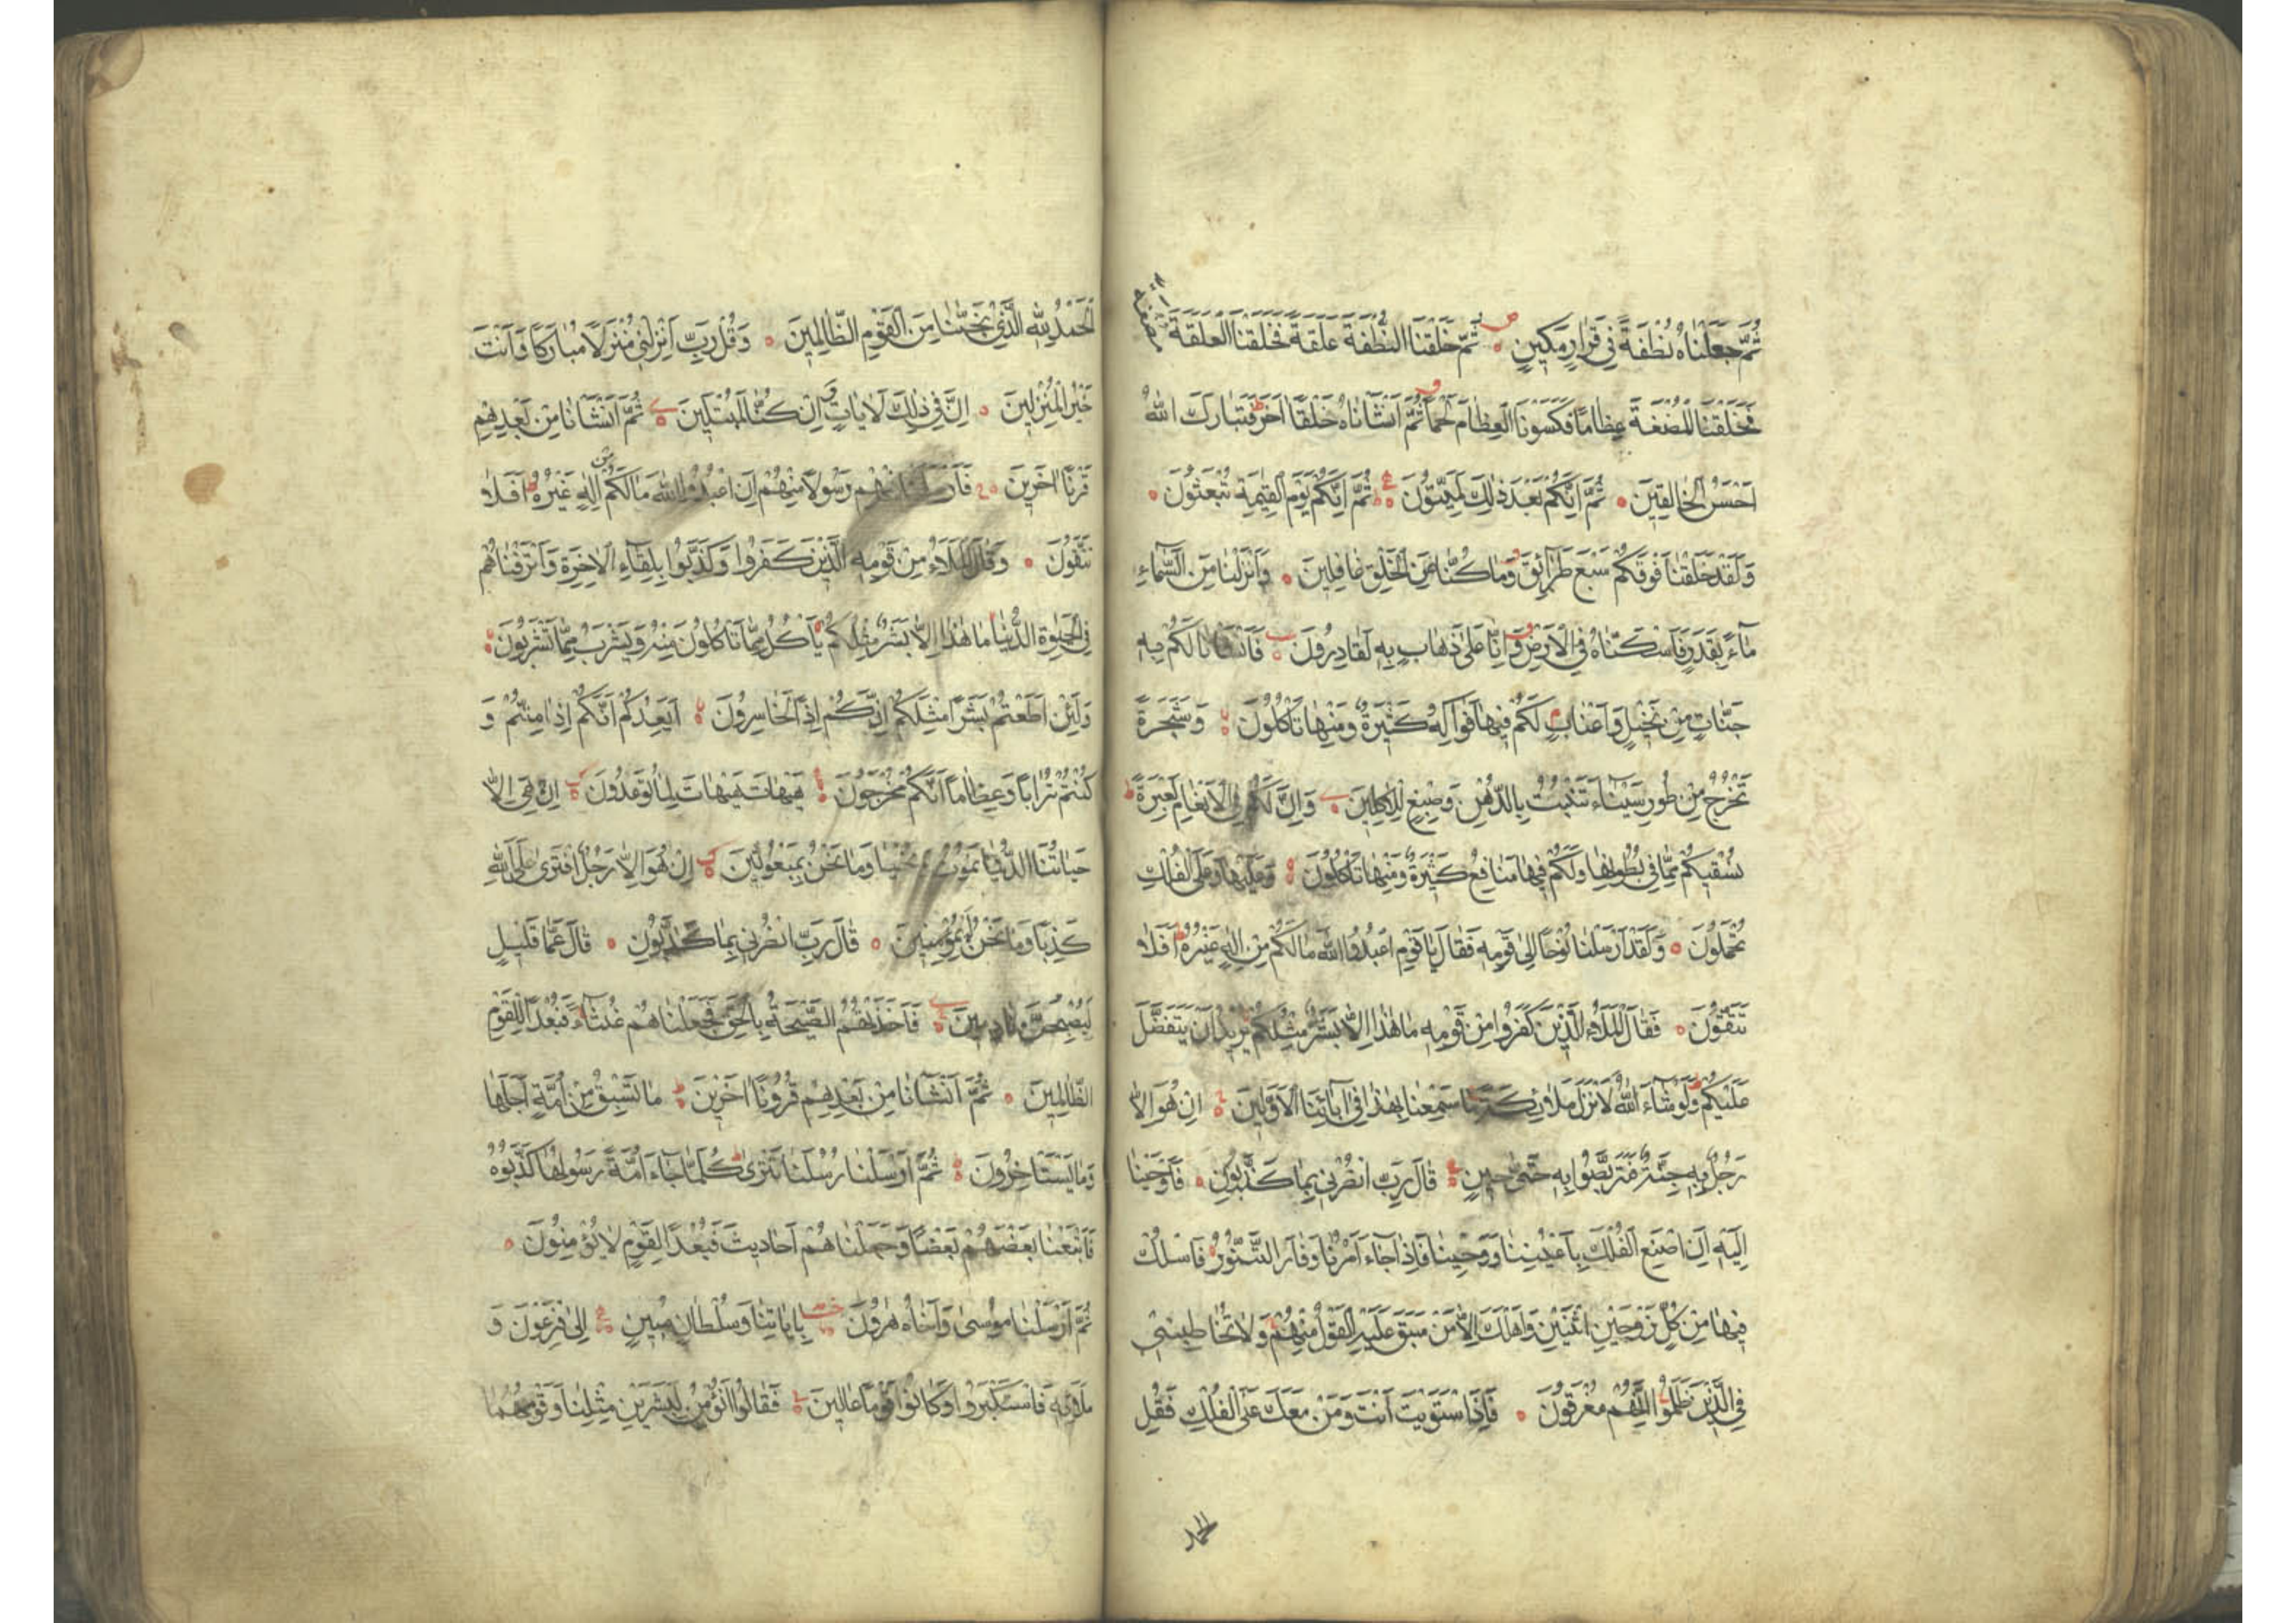 ثُمَّ جَعَلْنَاهُ نُطْفَةً فِي قَرَارٍ مَكِينٍ ثُمَّ خَلَقْنَا النُّطْفَةَ عَلَقَةً فَخَلَقْنَا الْعَلَقَةَ
فَخَلَقْنَا الْمُضْغَةَ عِظَامًا فَكَسَوْنَا الْعِظَامَ لَحْمًا ثُمَّ اَنْشَاْنَاهُ خَلْقًا اٰخَرَ فَتَبَارَكَ اللهُ
اَحْسَنُ الْخَالِقِينَ ثُمَّ اِنَّكُمْ بَعْدَ ذٰلِكَ لَمَيِّتُونَ ثُمَّ اِنَّكُمْ يَوْمَ الْقِيٰمَةِ تُبْعَثُونَ
وَلَقَدْ خَلَقْنَا فَوْقَكُمْ سَبْعَ طَرَآئِقَ وَمَا كُنَّا عَنِ الْخَلْقِ غَافِلِينَ وَاَنْزَلْنَا مِنَ السَّمَآءِ
مَآءً بِقَدَرٍ فَاَسْكَنَّاهُ فِي الْاَرْضِ وَاِنَّا عَلٰى ذَهَابٍ بِهِ لَقَادِرُونَ فَاَنْشَاْنَا لَكُمْ بِهِ
جَنَّاتٍ مِنْ نَخِيلٍ وَاَعْنَابٍ لَكُمْ فِيهَا فَوَاكِهُ كَثِيرَةٌ وَمِنْهَا تَاْكُلُونَ وَشَجَرَةً
تَخْرُجُ مِنْ طُورِ سَيْنَآءَ تَنْبُتُ بِالدُّهْنِ وَصِبْغٍ لِلْاٰكِلِينَ وَاِنَّ لَكُمْ فِي الْاَنْعَامِ لَعِبْرَةً
نُسْقِيكُمْ مِمَّا فِي بُطُونِهَا وَلَكُمْ فِيهَا مَنَافِعُ كَثِيرَةٌ وَمِنْهَا تَاْكُلُونَ وَعَلَيْهَا وَعَلَى الْفُلْكِ
تُحْمَلُونَ وَلَقَدْ اَرْسَلْنَا نُوحًا اِلٰى قَوْمِهِ فَقَالَ يَا قَوْمِ اعْبُدُوا اللهَ مَا لَكُمْ مِنْ اِلٰهٍ غَيْرُهُ اَفَلَا
تَتَّقُونَ فَقَالَ الْمَلَاُ الَّذِينَ كَفَرُوا مِنْ قَوْمِهِ مَا هٰذَا اِلَّا بَشَرٌ مِثْلُكُمْ يُرِيدُ اَنْ يَتَفَضَّلَ
عَلَيْكُمْ وَلَوْ شَآءَ اللهُ لَاَنْزَلَ مَلٰٓئِكَةً مَا سَمِعْنَا بِهٰذَا فِي اٰبَآئِنَا الْاَوَّلِينَ اِنْ هُوَ اِلَّا
رَجُلٌ بِهِ جِنَّةٌ فَتَرَبَّصُوا بِهِ حَتّٰى حِينٍ قَالَ رَبِّ انْصُرْنِي بِمَا كَذَّبُونِ فَاَوْحَيْنَا
اِلَيْهِ اَنِ اصْنَعِ الْفُلْكَ بِاَعْيُنِنَا وَوَحْيِنَا فَاِذَا جَآءَ اَمْرُنَا وَفَارَ التَّنُّورُ فَاسْلُكْ
فِيهَا مِنْ كُلٍّ زَوْجَيْنِ اثْنَيْنِ وَاَهْلَكَ اِلَّا مَنْ سَبَقَ عَلَيْهِ الْقَوْلُ مِنْهُمْ وَلَا تُخَاطِبْنِي
فِي الَّذِينَ ظَلَمُوا اِنَّهُمْ مُغْرَقُونَ فَاِذَا اسْتَوَيْتَ اَنْتَ وَمَنْ مَعَكَ عَلَى الْفُلْكِ فَقُلِ
الحمد
اَلْحَمْدُ لِلّٰهِ الَّذِي نَجّٰينَا مِنَ الْقَوْمِ الظَّالِمِينَ وَقُلْ رَبِّ اَنْزِلْنِي مُنْزَلًا مُبَارَكًا وَاَنْتَ
خَيْرُ الْمُنْزِلِينَ اِنَّ فِي ذٰلِكَ لَاٰيَاتٍ وَاِنْ كُنَّا لَمُبْتَلِينَ ثُمَّ اَنْشَاْنَا مِنْ بَعْدِهِمْ
قَرْنًا اٰخَرِينَ فَاَرْسَلْنَا فِيهِمْ رَسُولًا مِنْهُمْ اَنِ اعْبُدُوا اللهَ مَا لَكُمْ مِنْ اِلٰهٍ غَيْرُهُ اَفَلَا
تَتَّقُونَ وَقَالَ الْمَلَاُ مِنْ قَوْمِهِ الَّذِينَ كَفَرُوا وَكَذَّبُوا بِلِقَآءِ الْاٰخِرَةِ وَاَتْرَفْنَاهُمْ
فِي الْحَيٰوةِ الدُّنْيَا مَا هٰذَا اِلَّا بَشَرٌ مِثْلُكُمْ يَاْكُلُ مِمَّا تَاْكُلُونَ مِنْهُ وَيَشْرَبُ مِمَّا تَشْرَبُونَ
وَلَئِنْ اَطَعْتُمْ بَشَرًا مِثْلَكُمْ اِنَّكُمْ اِذًا لَخَاسِرُونَ اَيَعِدُكُمْ اَنَّكُمْ اِذَا مِتُّمْ وَ
كُنْتُمْ تُرَابًا وَعِظَامًا اَنَّكُمْ مُخْرَجُونَ هَيْهَاتَ هَيْهَاتَ لِمَا تُوعَدُونَ اِنْ هِيَ اِلَّا
حَيَاتُنَا الدُّنْيَا نَمُوتُ وَنَحْيَا وَمَا نَحْنُ بِمَبْعُوثِينَ اِنْ هُوَ اِلَّا رَجُلٌ افْتَرٰى عَلَى اللهِ
كَذِبًا وَمَا نَحْنُ لَهُ بِمُؤْمِنِينَ قَالَ رَبِّ انْصُرْنِي بِمَا كَذَّبُونِ قَالَ عَمَّا قَلِيلٍ
لَيُصْبِحُنَّ نَادِمِينَ فَاَخَذَتْهُمُ الصَّيْحَةُ بِالْحَقِّ فَجَعَلْنَاهُمْ غُثَآءً فَبُعْدًا لِلْقَوْمِ
الظَّالِمِينَ ثُمَّ اَنْشَاْنَا مِنْ بَعْدِهِمْ قُرُونًا اٰخَرِينَ مَا تَسْبِقُ مِنْ اُمَّةٍ اَجَلَهَا
وَمَا يَسْتَاْخِرُونَ ثُمَّ اَرْسَلْنَا رُسُلَنَا تَتْرٰى كُلَّمَا جَآءَ اُمَّةً رَسُولُهَا كَذَّبُوهُ
فَاَتْبَعْنَا بَعْضَهُمْ بَعْضًا وَجَعَلْنَاهُمْ اَحَادِيثَ فَبُعْدًا لِقَوْمٍ لَا يُؤْمِنُونَ
ثُمَّ اَرْسَلْنَا مُوسٰى وَاَخَاهُ هٰرُونَ بِاٰيَاتِنَا وَسُلْطَانٍ مُبِينٍ اِلٰى فِرْعَوْنَ وَ
مَلَا۟ئِهِ فَاسْتَكْبَرُوا وَكَانُوا قَوْمًا عَالِينَ فَقَالُوا اَنُؤْمِنُ لِبَشَرَيْنِ مِثْلِنَا وَقَوْمُهُمَا